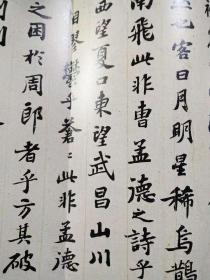 也客曰月明星稀烏鵲
南飛此非曹孟德之詩乎
西望夏口東望武昌山川
相繆鬱乎蒼〻此非孟德
之困於周郎者乎方其破